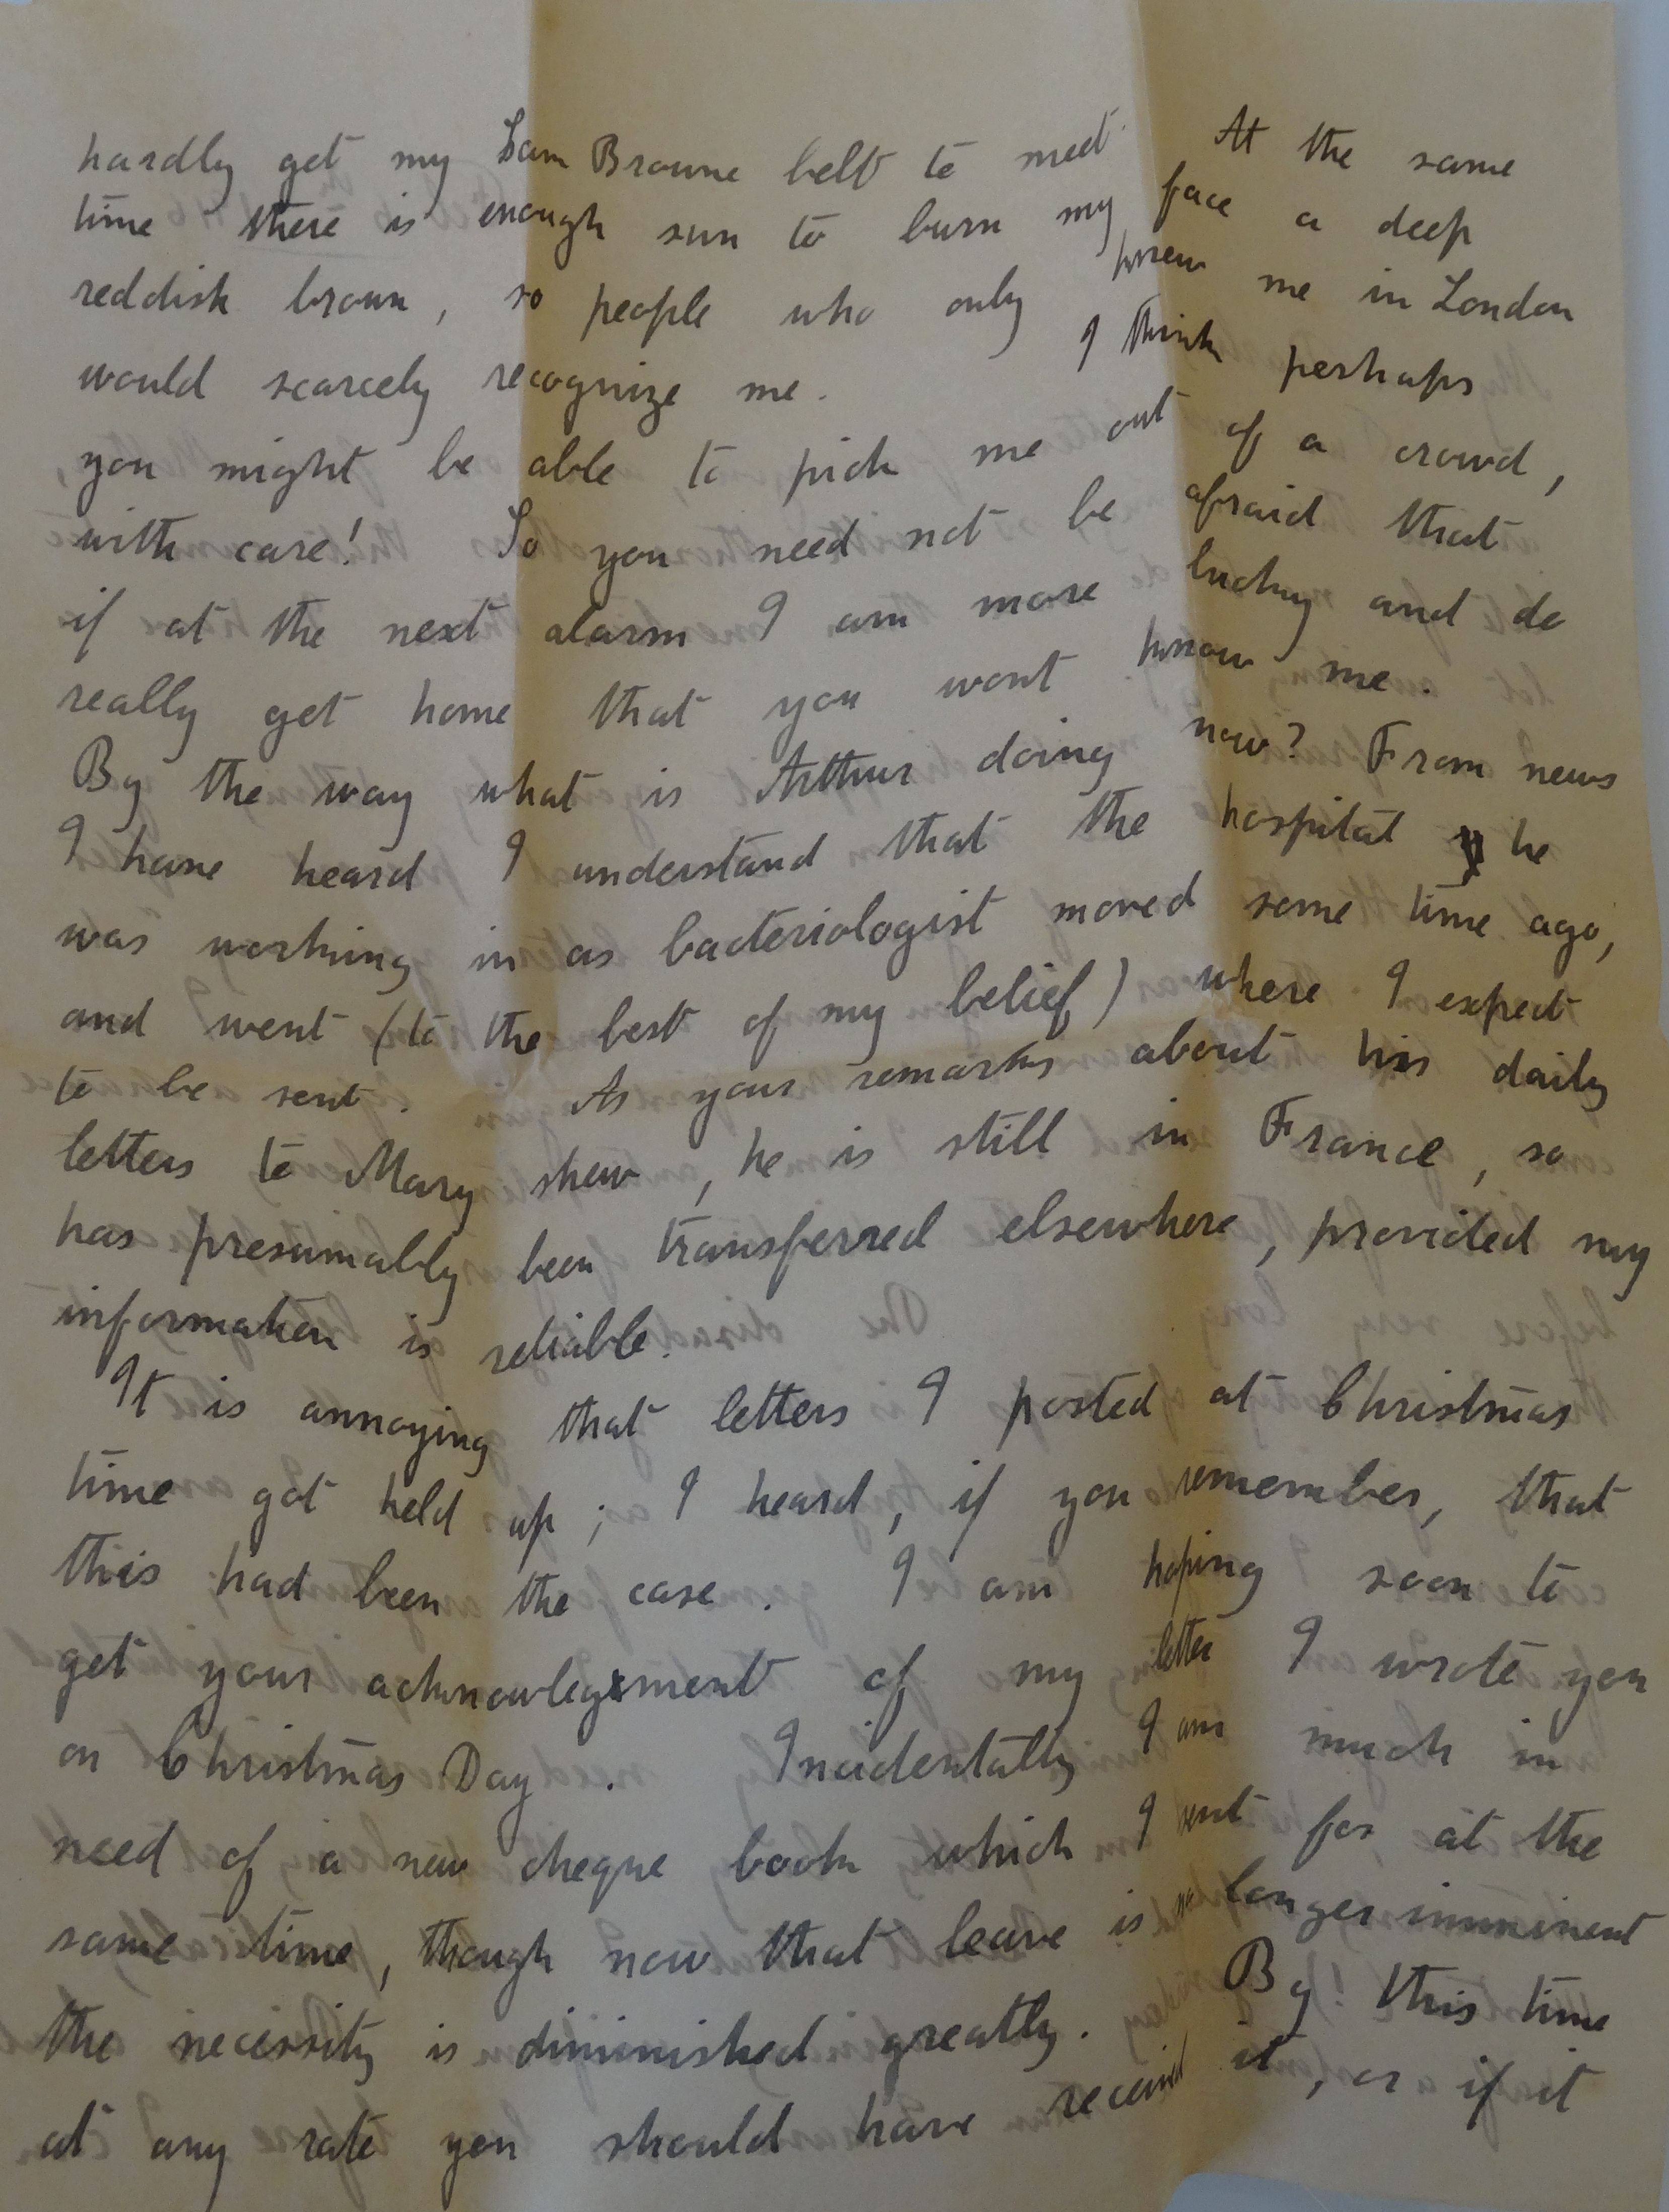 hardly get my Sam Browne belt to meet. At the same
time there is enough sun to burn my face a deep
reddish brown, so people who only knew me in London
would scarcely recognize me. I think perhaps
you might be able to pick me out of a crowd,
with care! So you need not be afraid that
if at the next alarm I am more lucky and do
really get home that you wont know me.
By the way what is Arthur doing now? From news
I have heard I understand that the hospital he
was working in as bacteriologist moved some time ago,
and went (to the best of my belief) where I expect
to be sent. As your remarks about his daily
letters to Mary shew, he is still in France, so
has presumably been transferred elsewhere, provided my
information is reliable.
It is annoying that letters I posted at Christmas
time got held up; I heard, if you remember, that
this had been the case. I am hoping soon to
get your acknowlegement of my letter I wrote you
on Christmas Day. Incidentally I am much in
need of a new cheque book which I sent for at the
same time, though now that leave is no longer imminent
the necessity is diminished greatly. By! this time
at any rate you should have received it, or if it